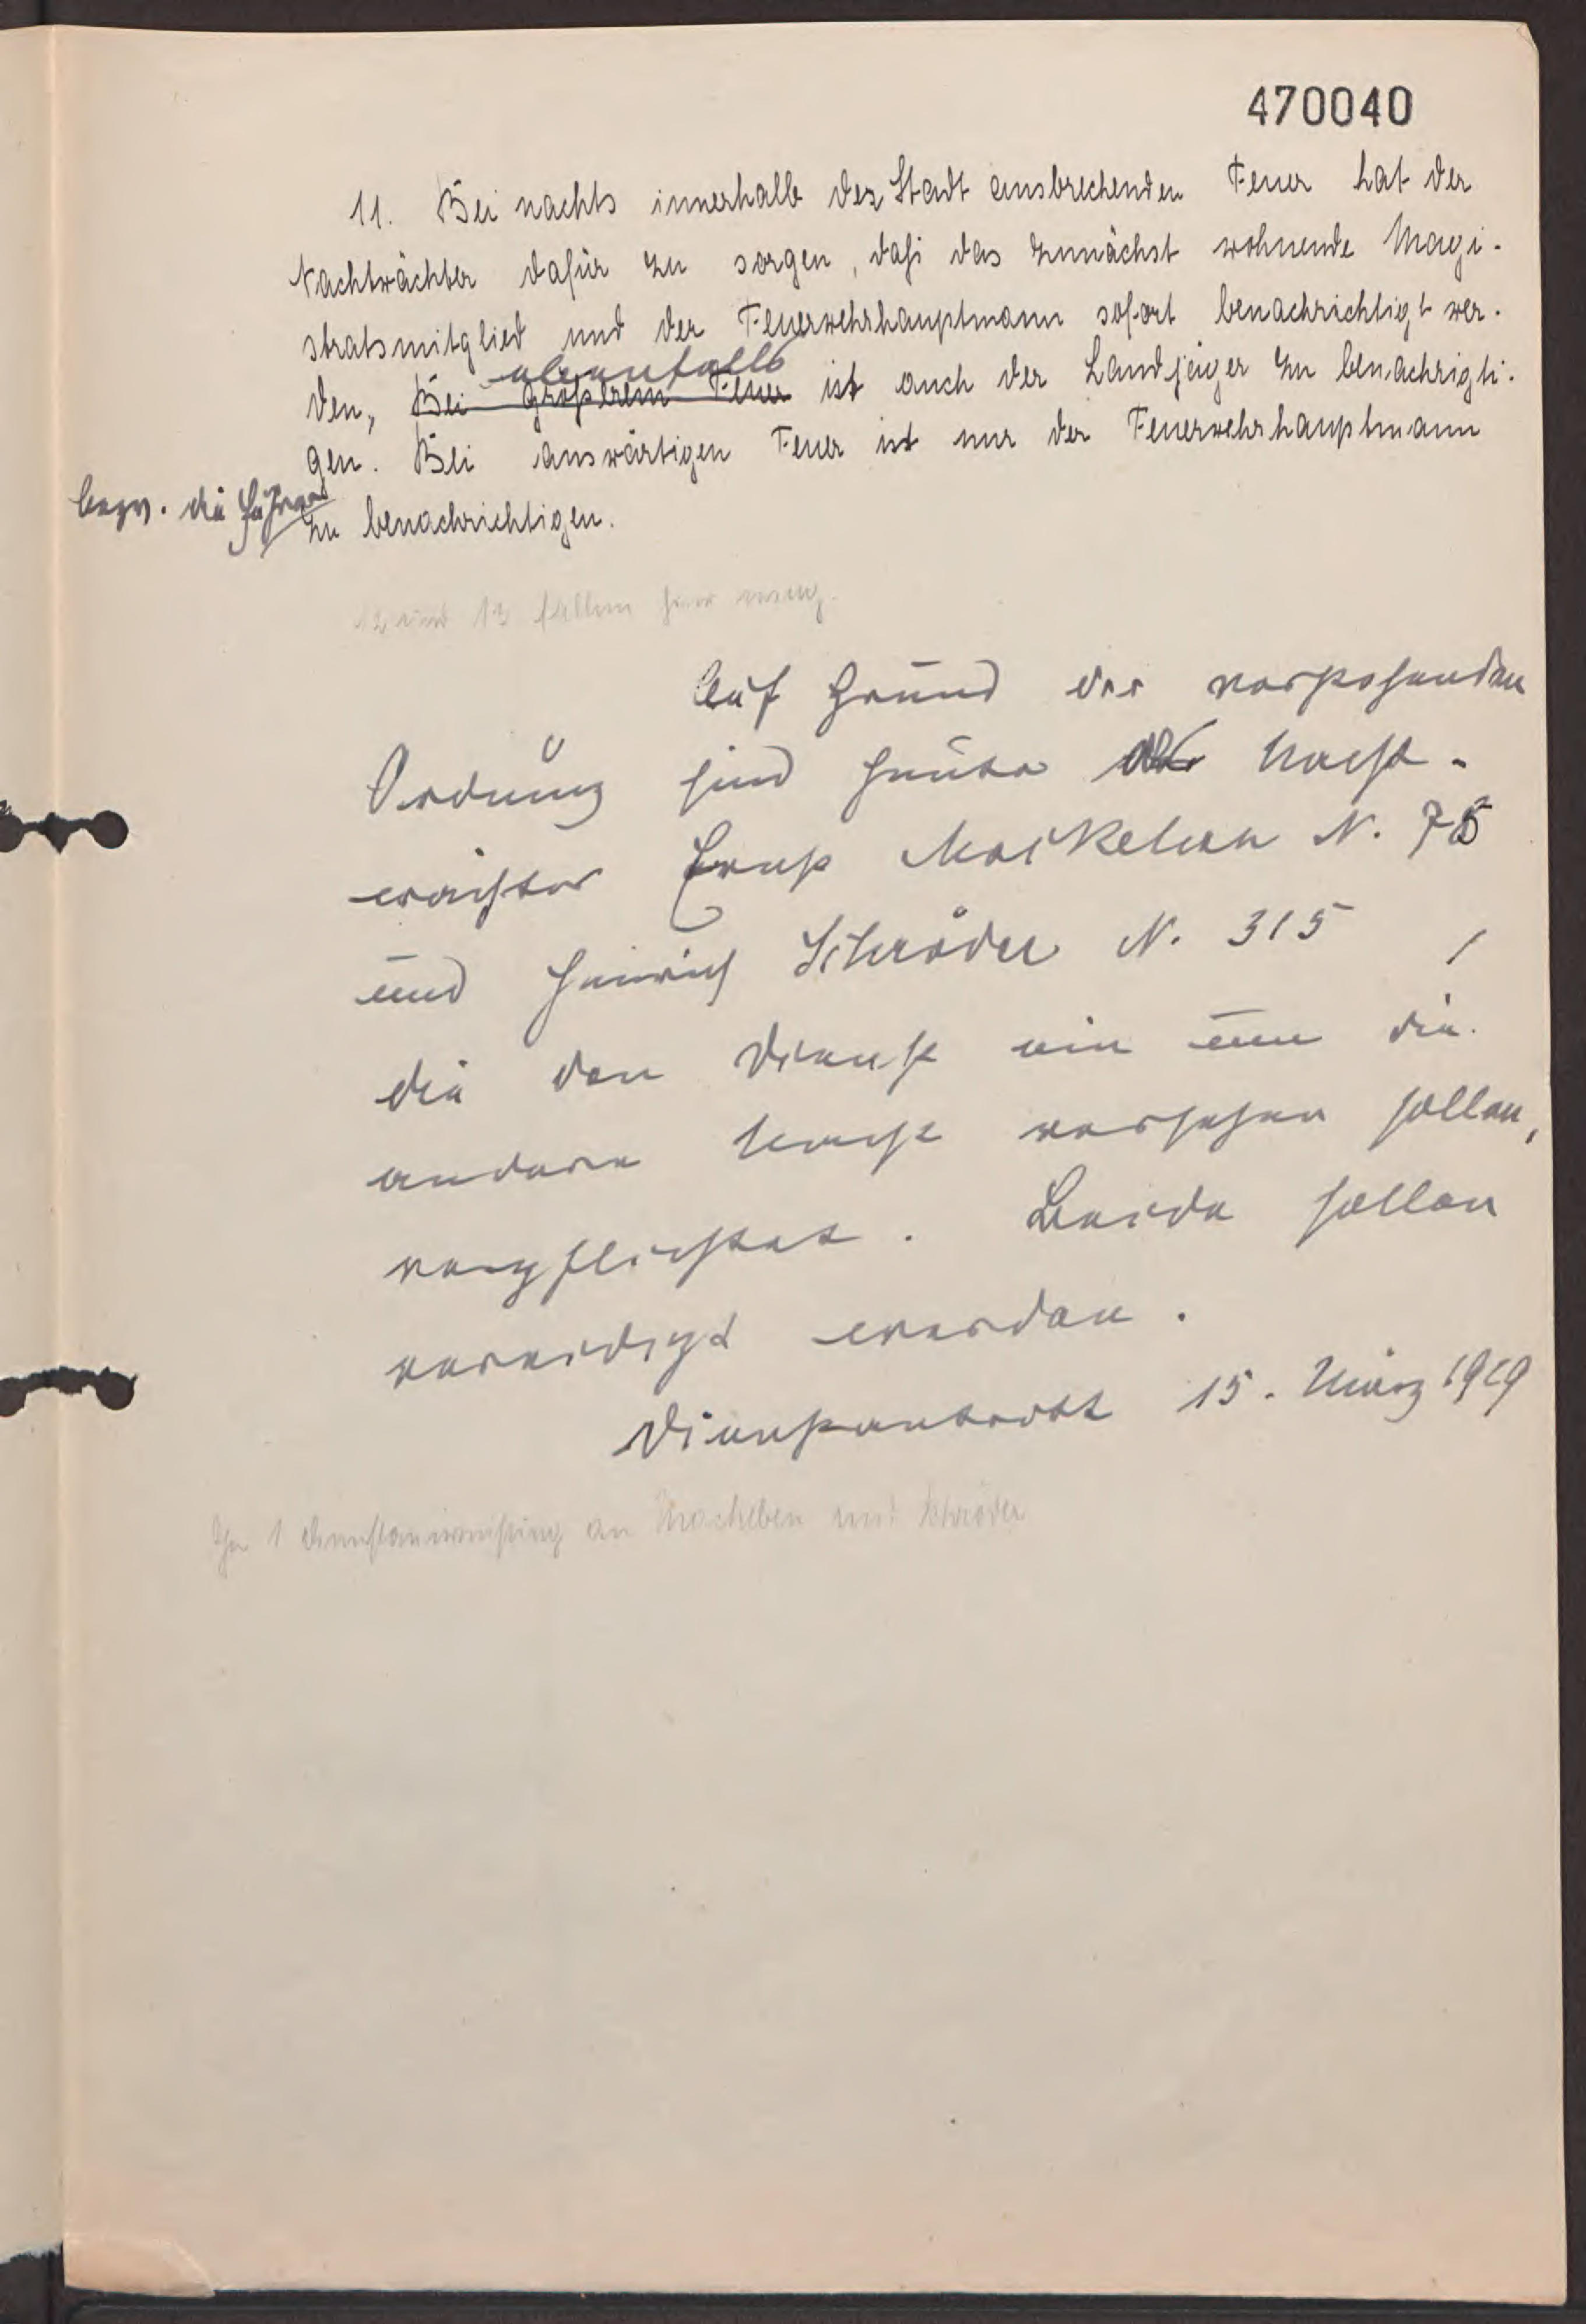 470040
11. Bei nachts innerhalb der Stadt ausbrechenden Feuer hat der
Nachtwächter dafür zu sorgen, daß das zunächst wohnende Magi-
stratsmitglied und der Feuerwehrhauptmann sofort benachrichtigt wer-
ebenfalls
den, Bei größerem Feuer ist auch der Landjäger zu benachrigti-
gen. Bei auswärtigen Feuer ist nur der Feuerwehrhauptmann
bezw. die
zu benachrichtigen.
12 und 13 fallen hier weg.
Auf Grund der vorstehenden
Ordnung sind heute als Nacht-
wächter Ernst N. 75
und Heinrich Schröder N. 315,
die den Dienst ein um die
andere Nacht versehen sollen,
verpflichtet. Beide sollen
vereidigt werden.
Dienstantritt 15. März 1919
Je 1 Dienstanweisung an und Schröder